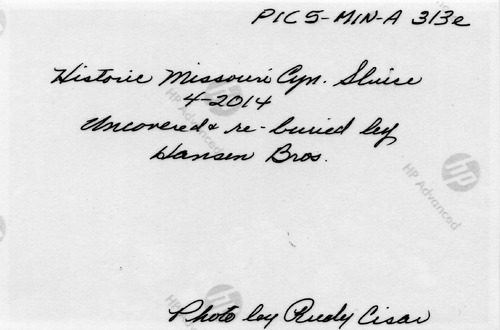 PICS-MIN-A 313e
Historic Missouri Cyn. Sluice
4-2014
Uncovered & re-buried by
Hansen Bros.
hp
HP Advanced
hp
HP Advanced
Photo by Rudy Cisar